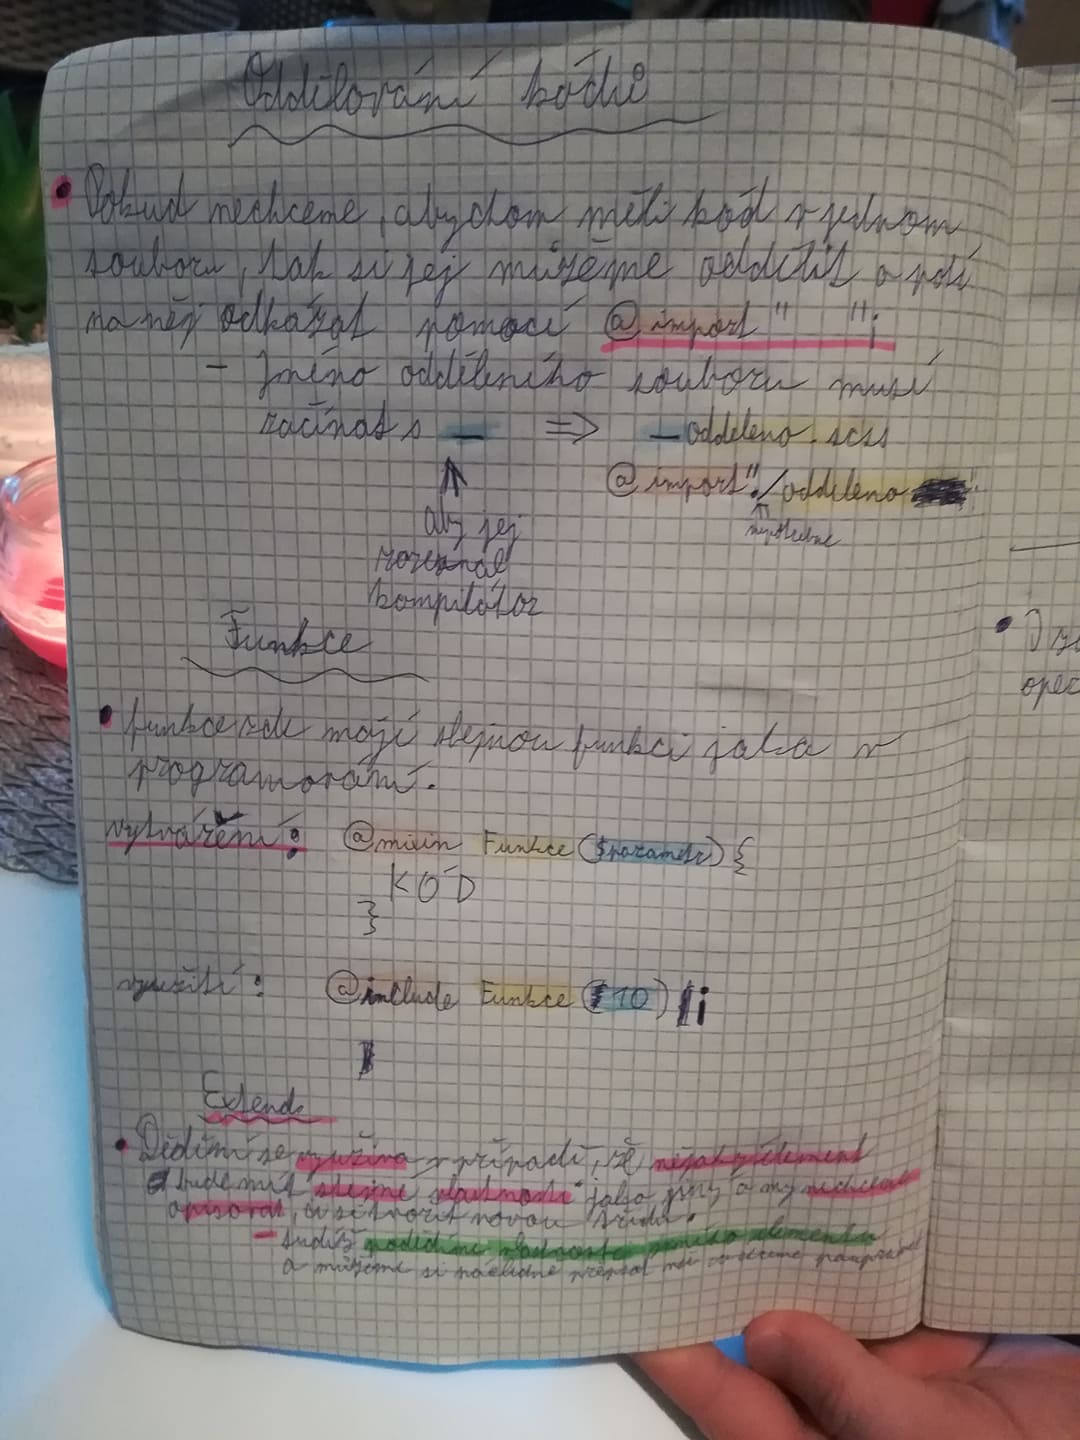 Oddělování kódů
Pokud nechceme, abychom měli kód v jednom
souboru, tak si jej můžeme oddělit a poté
na něj odkázat pomocí @import " ";
- Jméno odděleného souboru musí
začínat s _ => _oddeleno.scss
@import "./oddeleno "
aby jej
rozeznal
kompilátor
Funkce
funkce zde mají stejnou funkci jako v
programování.
vytváření: @mixin Funkce ($parametr) {
KÓD
}
využití: @include Funkce (10) ;
Extend
Dědění se využívá v případě, že nějaký element
bude mít stejné vlastnosti jako jiný a my nechceme
opisovat, či si tvořit novou třídu.
- tudíž podědíme vlastnosti jiného elementu
a můžeme si následně přepsat
I
opec